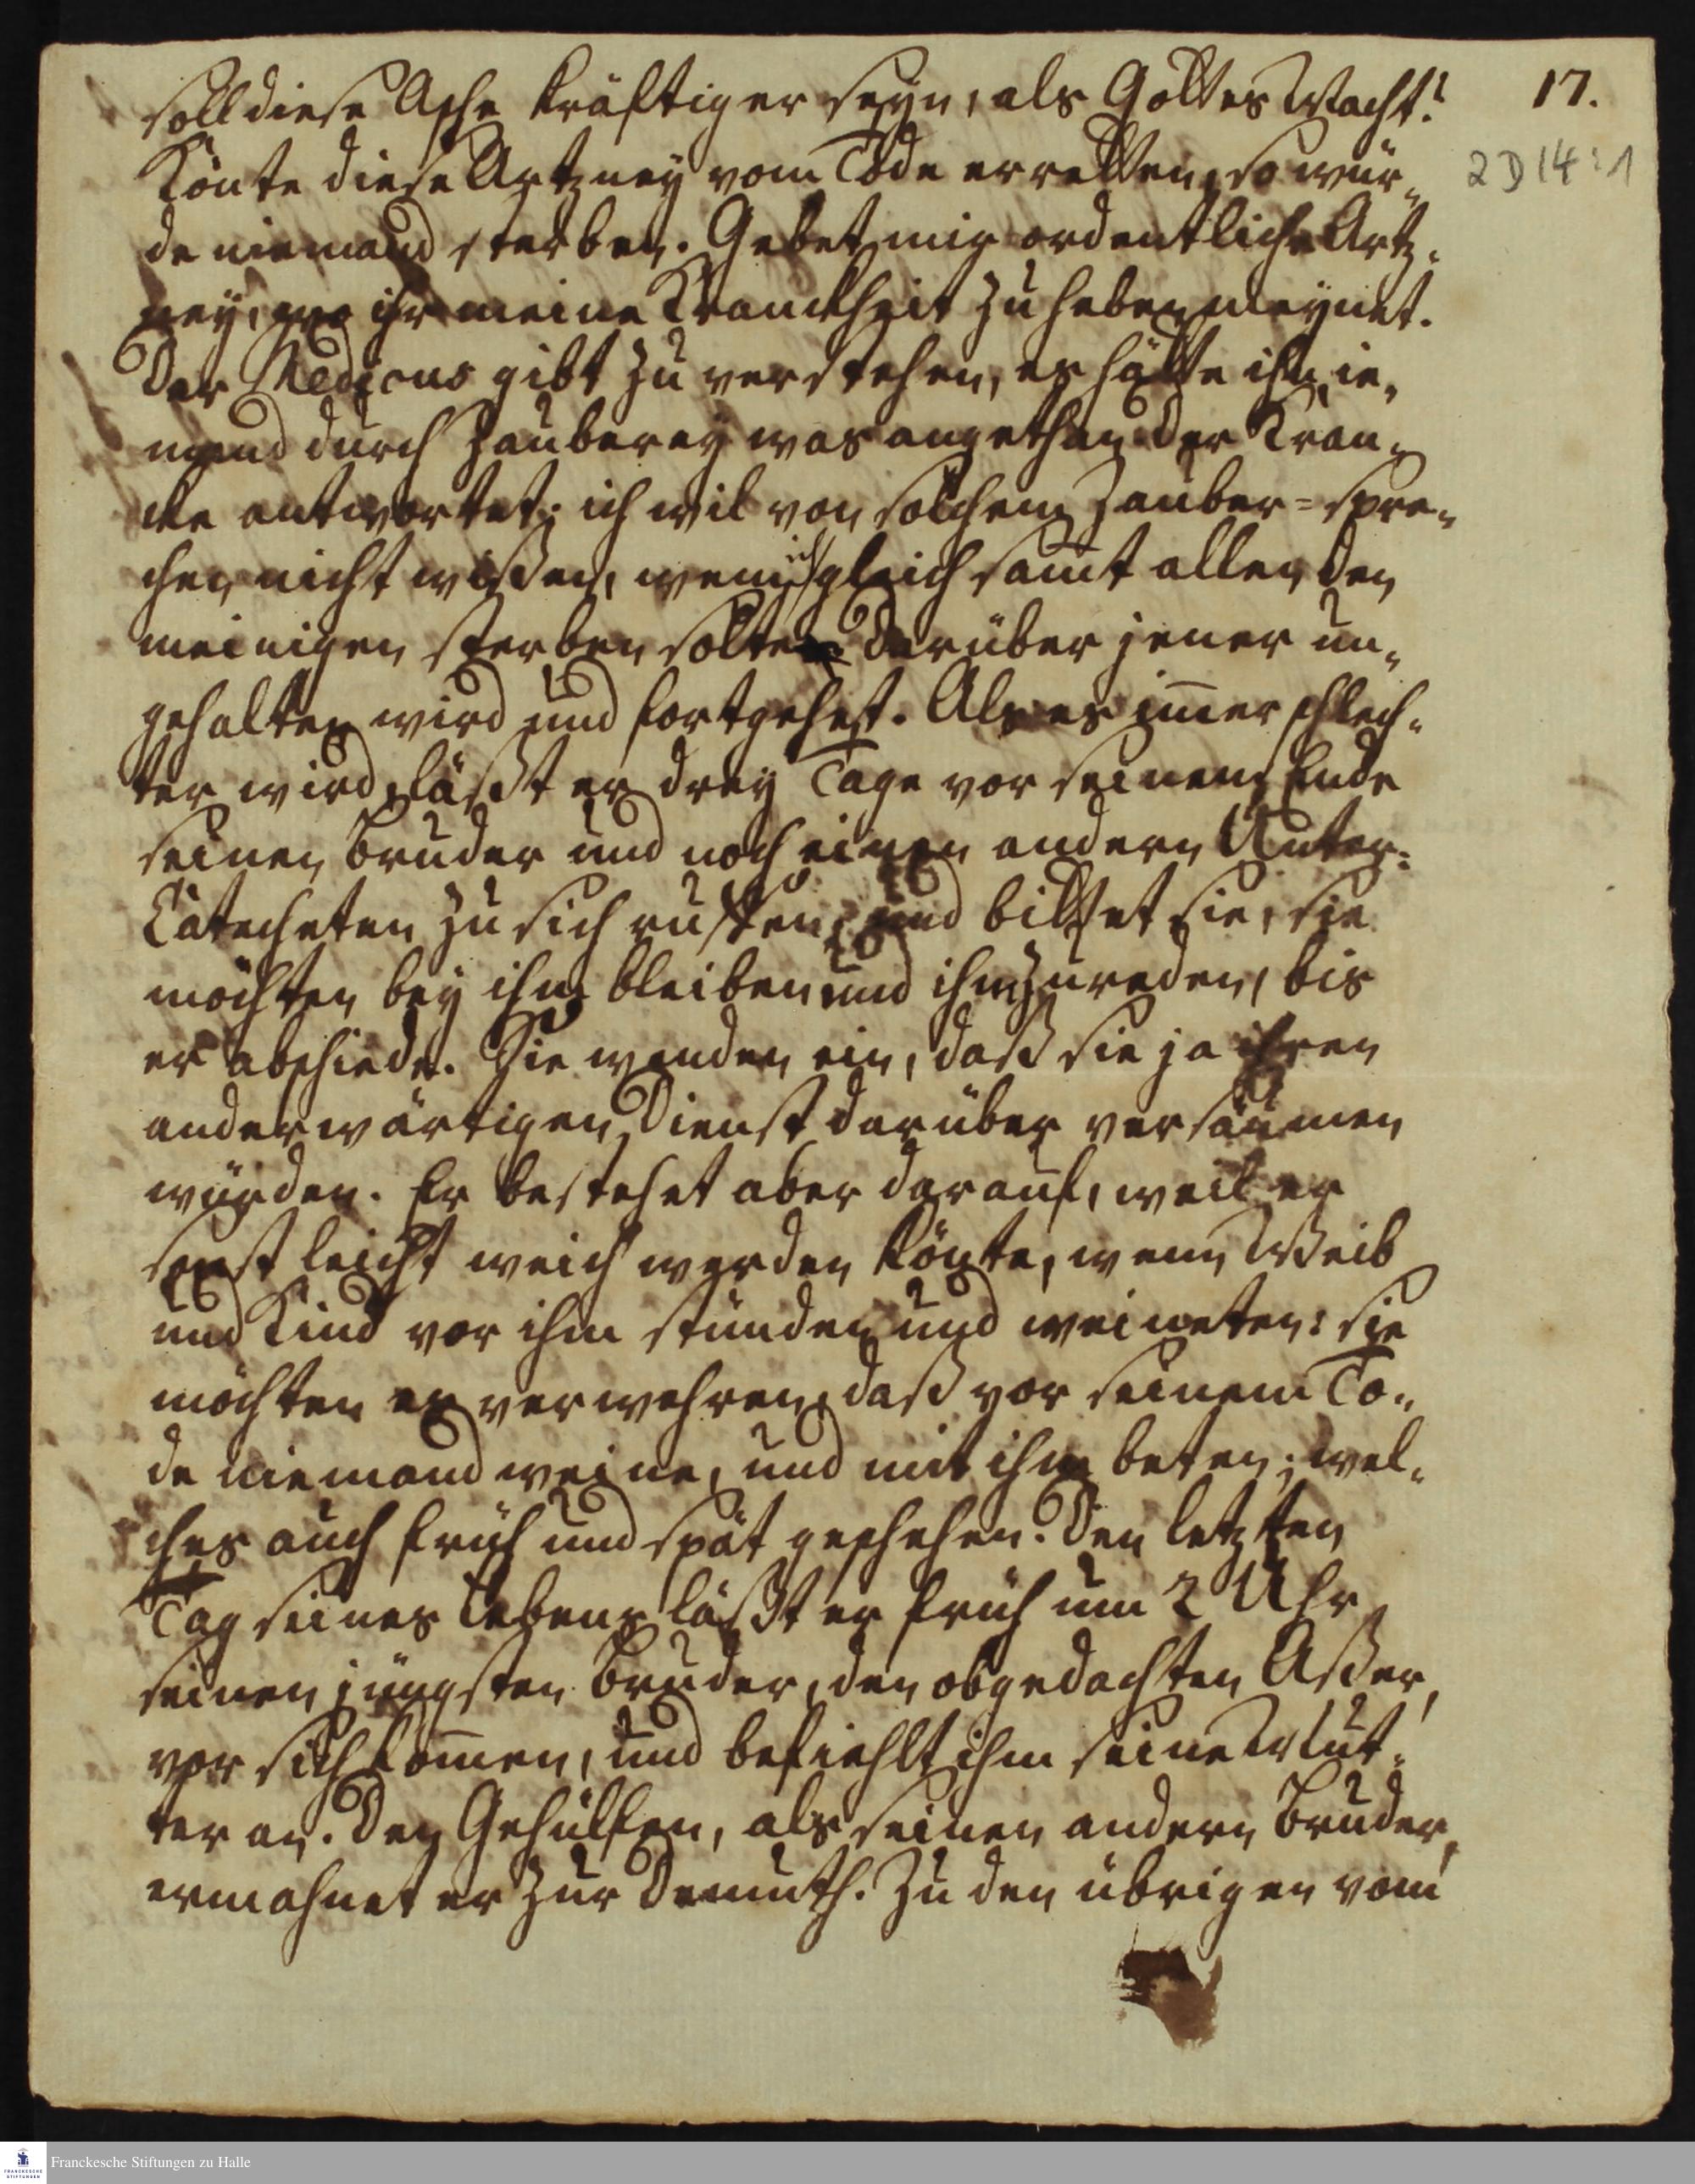 17.
2 D 14 : 1
soll diese Asche kräftiger seyn, als Gottes Macht?
Könte diese Artzney vom Tode erretten, so wür-
de niemand sterben. Gebet mir ordentliche Artz-
ney, wo ihr meine Kranckheit zu heben meynet.
Der Medicus gibt zu verstehen, es hätte ihm ie-
mand durch Zauberey was angethan. Der Kran-
cke antwortet: ich wil von solchem Zauber-spre-
chen nicht wißen, wenn ich gleich samt allen den
meinigen sterben solte. Darüber jener un-
gehalten wird und fortgehet. Als es immer schlech-
ter wird, läßt er drey Tage vor seinem Ende
seinen Bruder und noch einen andern Unter-
Catecheten zu sich ruffen, und bittet sie, sie
möchten bey ihm bleiben und ihm zureden, bis
er abschiede. Sie wenden ein, daß sie ja ihren
anderwärtigen Dienst darüber versäumen
würden. Er bestehet aber darauf, weil er
sonst leicht weich werden könte, wenn Weib
und Kind vor ihm stünden und weineten: sie
möchten es verwehren, daß vor seinem To-
de niemand weine, und mit ihm beten; wel-
ches auch früh und spät geschehen. Den letzten
Tag seines Lebens läßt er früh um 2 Uhr
seinen jüngsten Bruder, den obgedachten Aßer,
vor sich kommen, und befiehlt ihm seine Mut-
ter an. Den Gehülfen, als seinen andern Bruder,
ermahnet er zur Demuth. Zu den übrigen vom
Franckesche Stiftungen zu Halle
FRANCKESCHE
STIFTUNGEN